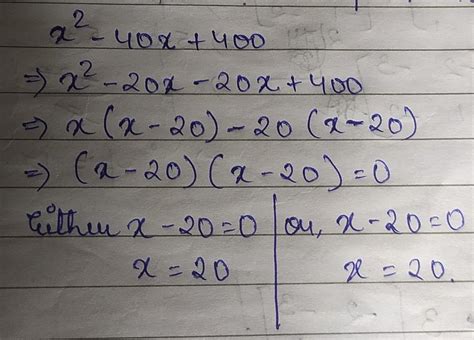 x² - 40x + 400
⇒ x² - 20x - 20x + 400
⇒ x(x - 20) - 20(x - 20)
⇒ (x - 20)(x - 20) = 0
Either x - 20 = 0 | or, x - 20 = 0
x = 20 | x = 20.